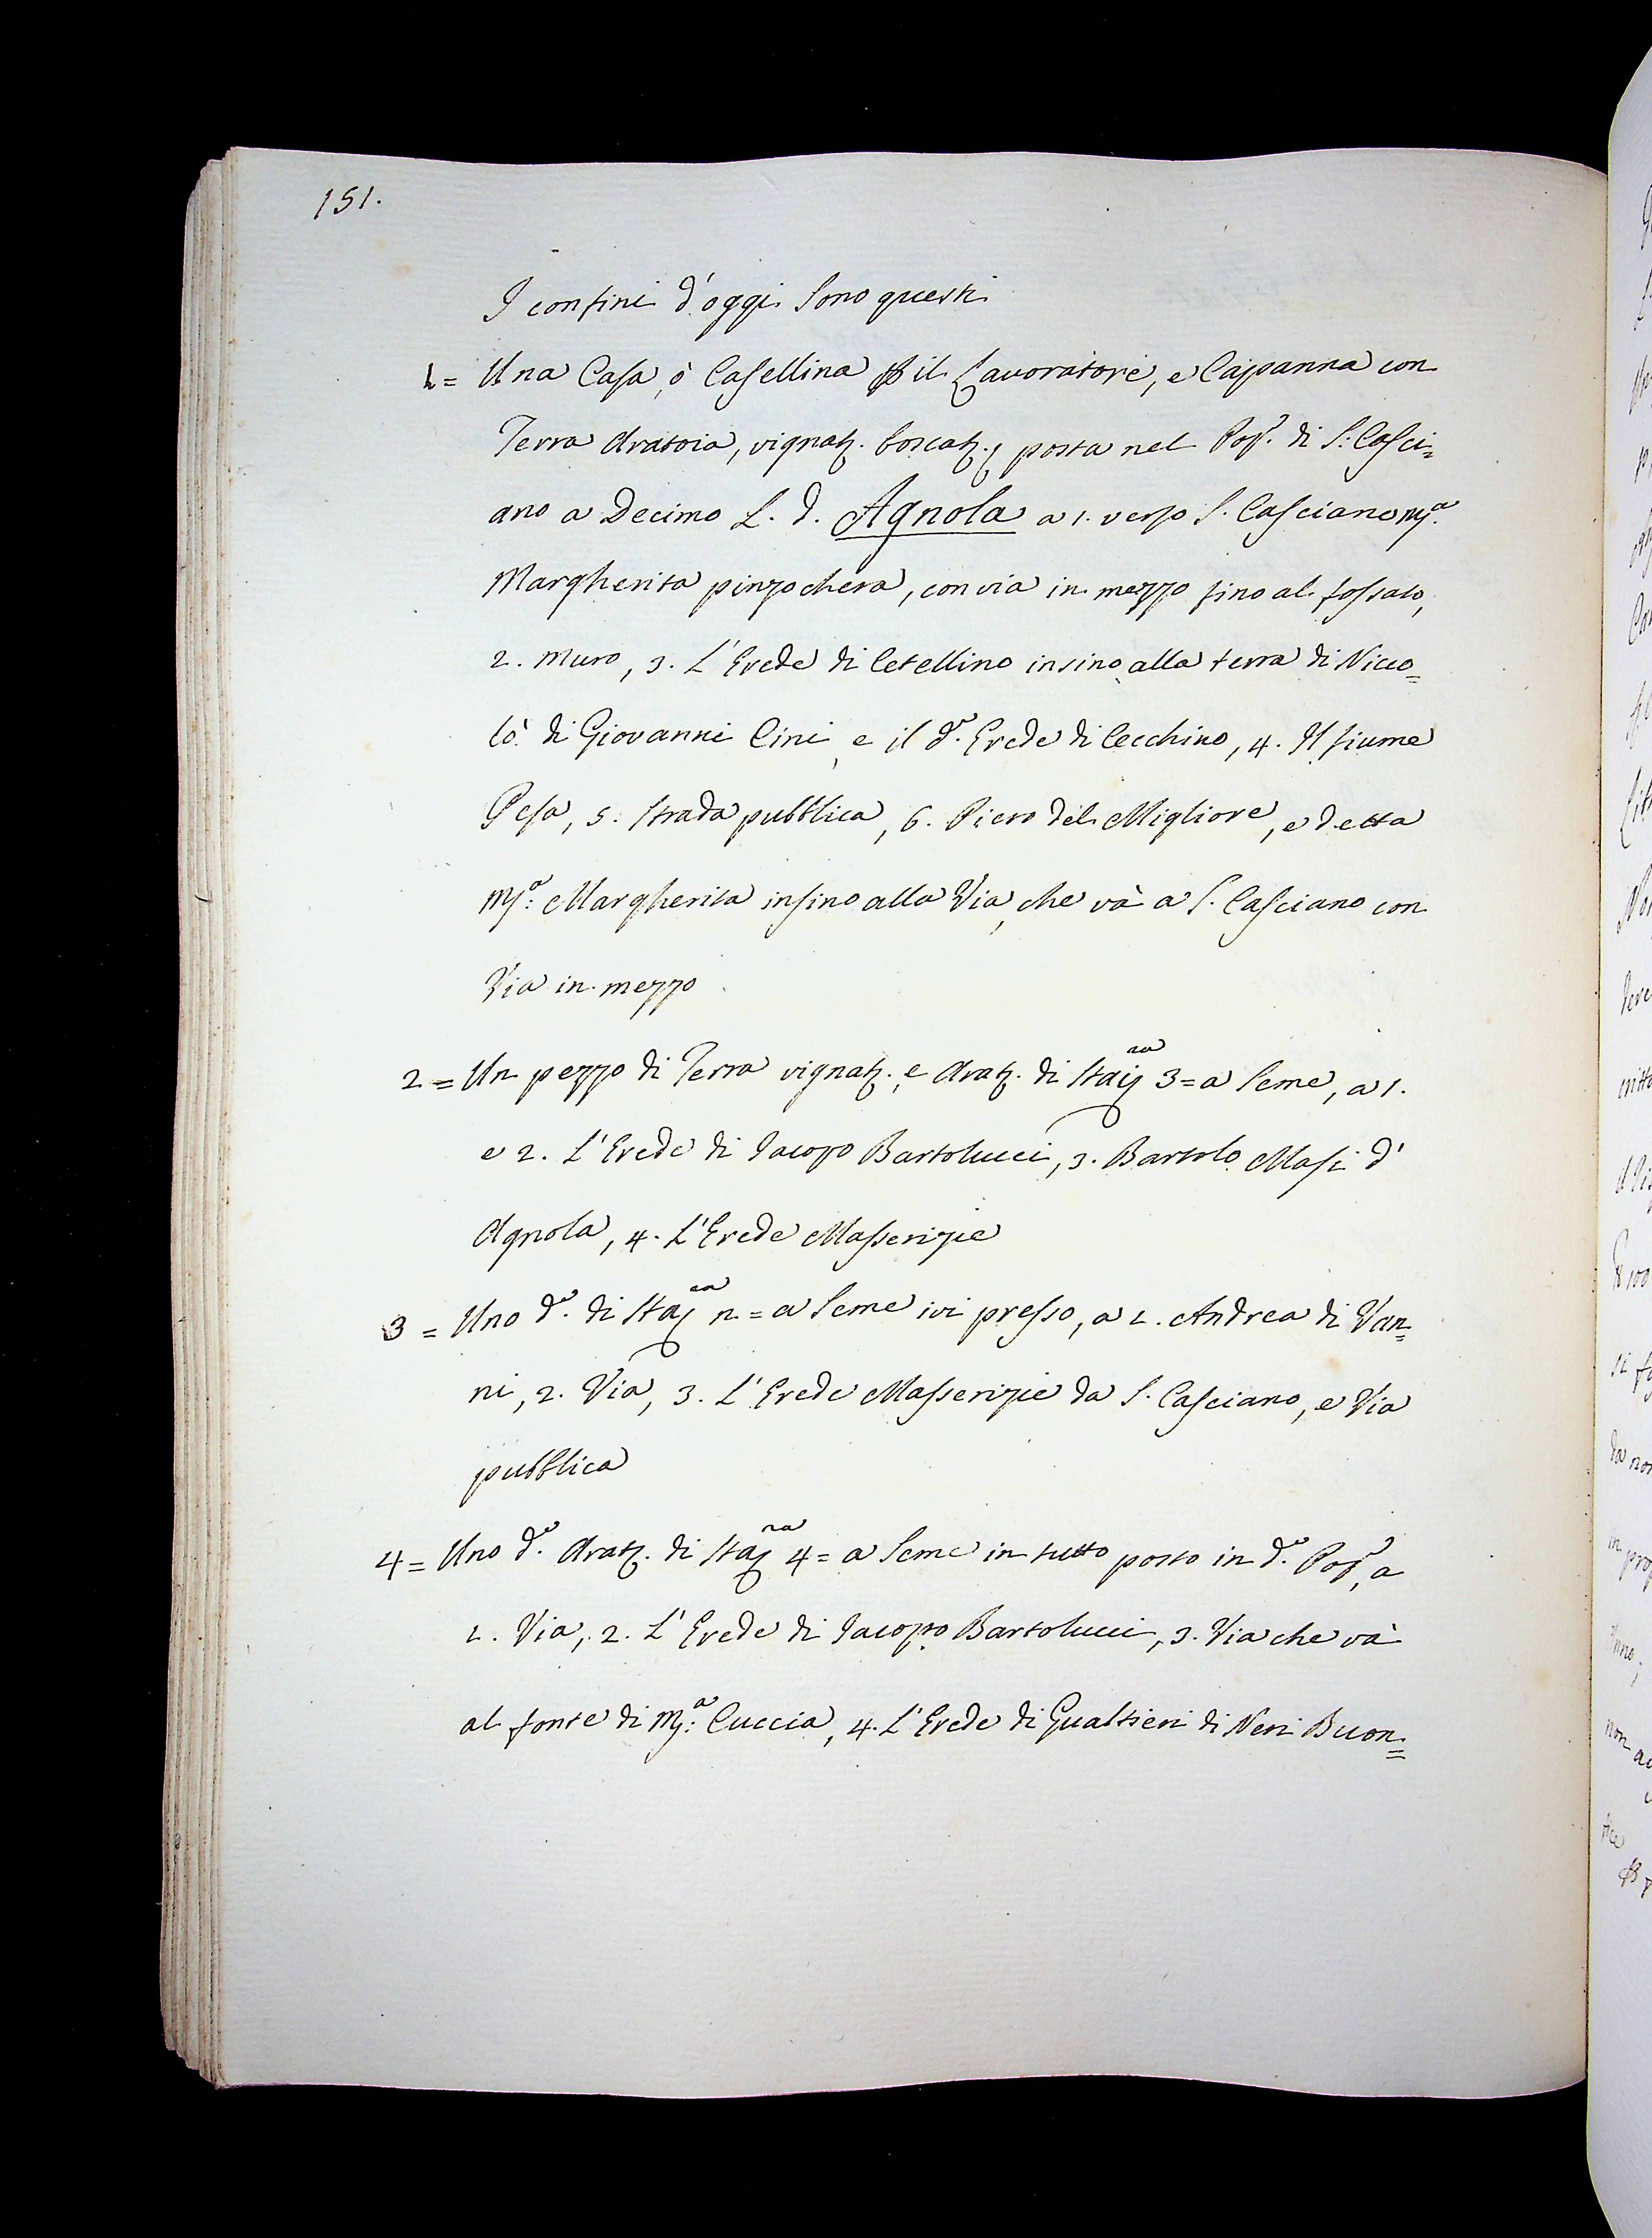 151.
I confini d'oggi sono questi
1= Una Casa, ò Casellina p il Lavoratore, e Capanna con
Terra Aratoia, vignat. boscat., posta nel Pop.º di S. Casci=
ano a Decimo L. d. Agnola a 1. verso S. Casciano M.ª
Margherita pinzochera, con via in mezzo fino al fossato,
2. muro, 3. L'Erede di Cetellino insino alla terra di Nicco=
lò di Giovanni Cini, e il d.º Erede di Cecchino, 4. Il fiume
Pesa, 5. strada pubblica, 6. Piero del Migliore, e detta
M.ª Margherita insino alla Via, che và a S. Casciano con
Via in mezzo
2= Un pezzo di Terra vignat. e Arat. di Staij na 3= a Seme, a 1.
e 2. L'Erede di Iacopo Bartolucci, 3. Bartolo Masi d'
Agnola, 4. L'Erede Masserizie
3= Uno d.º di Staj n= a Seme ivi presso, a 1. Andrea di Van=
ni, 2. Via, 3. L'Erede Masserizie da S. Casciano, e Via
pubblica
4= Uno d.º Arat. di Staj na 4= a Seme in tutto posto in d.º Pop.º, a
1. Via, 2. L'Erede di Iacopo Bartolucci, 3. Via che và
al fonte di M.ª Cuccia, 4. L'Erede di Gualtieri di Neri Buon=